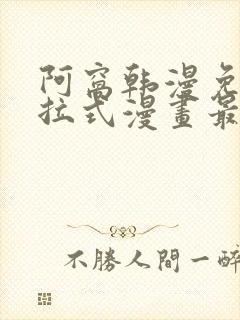 阿窩韩漫免
拉式漫畫最
不勝人間一醉